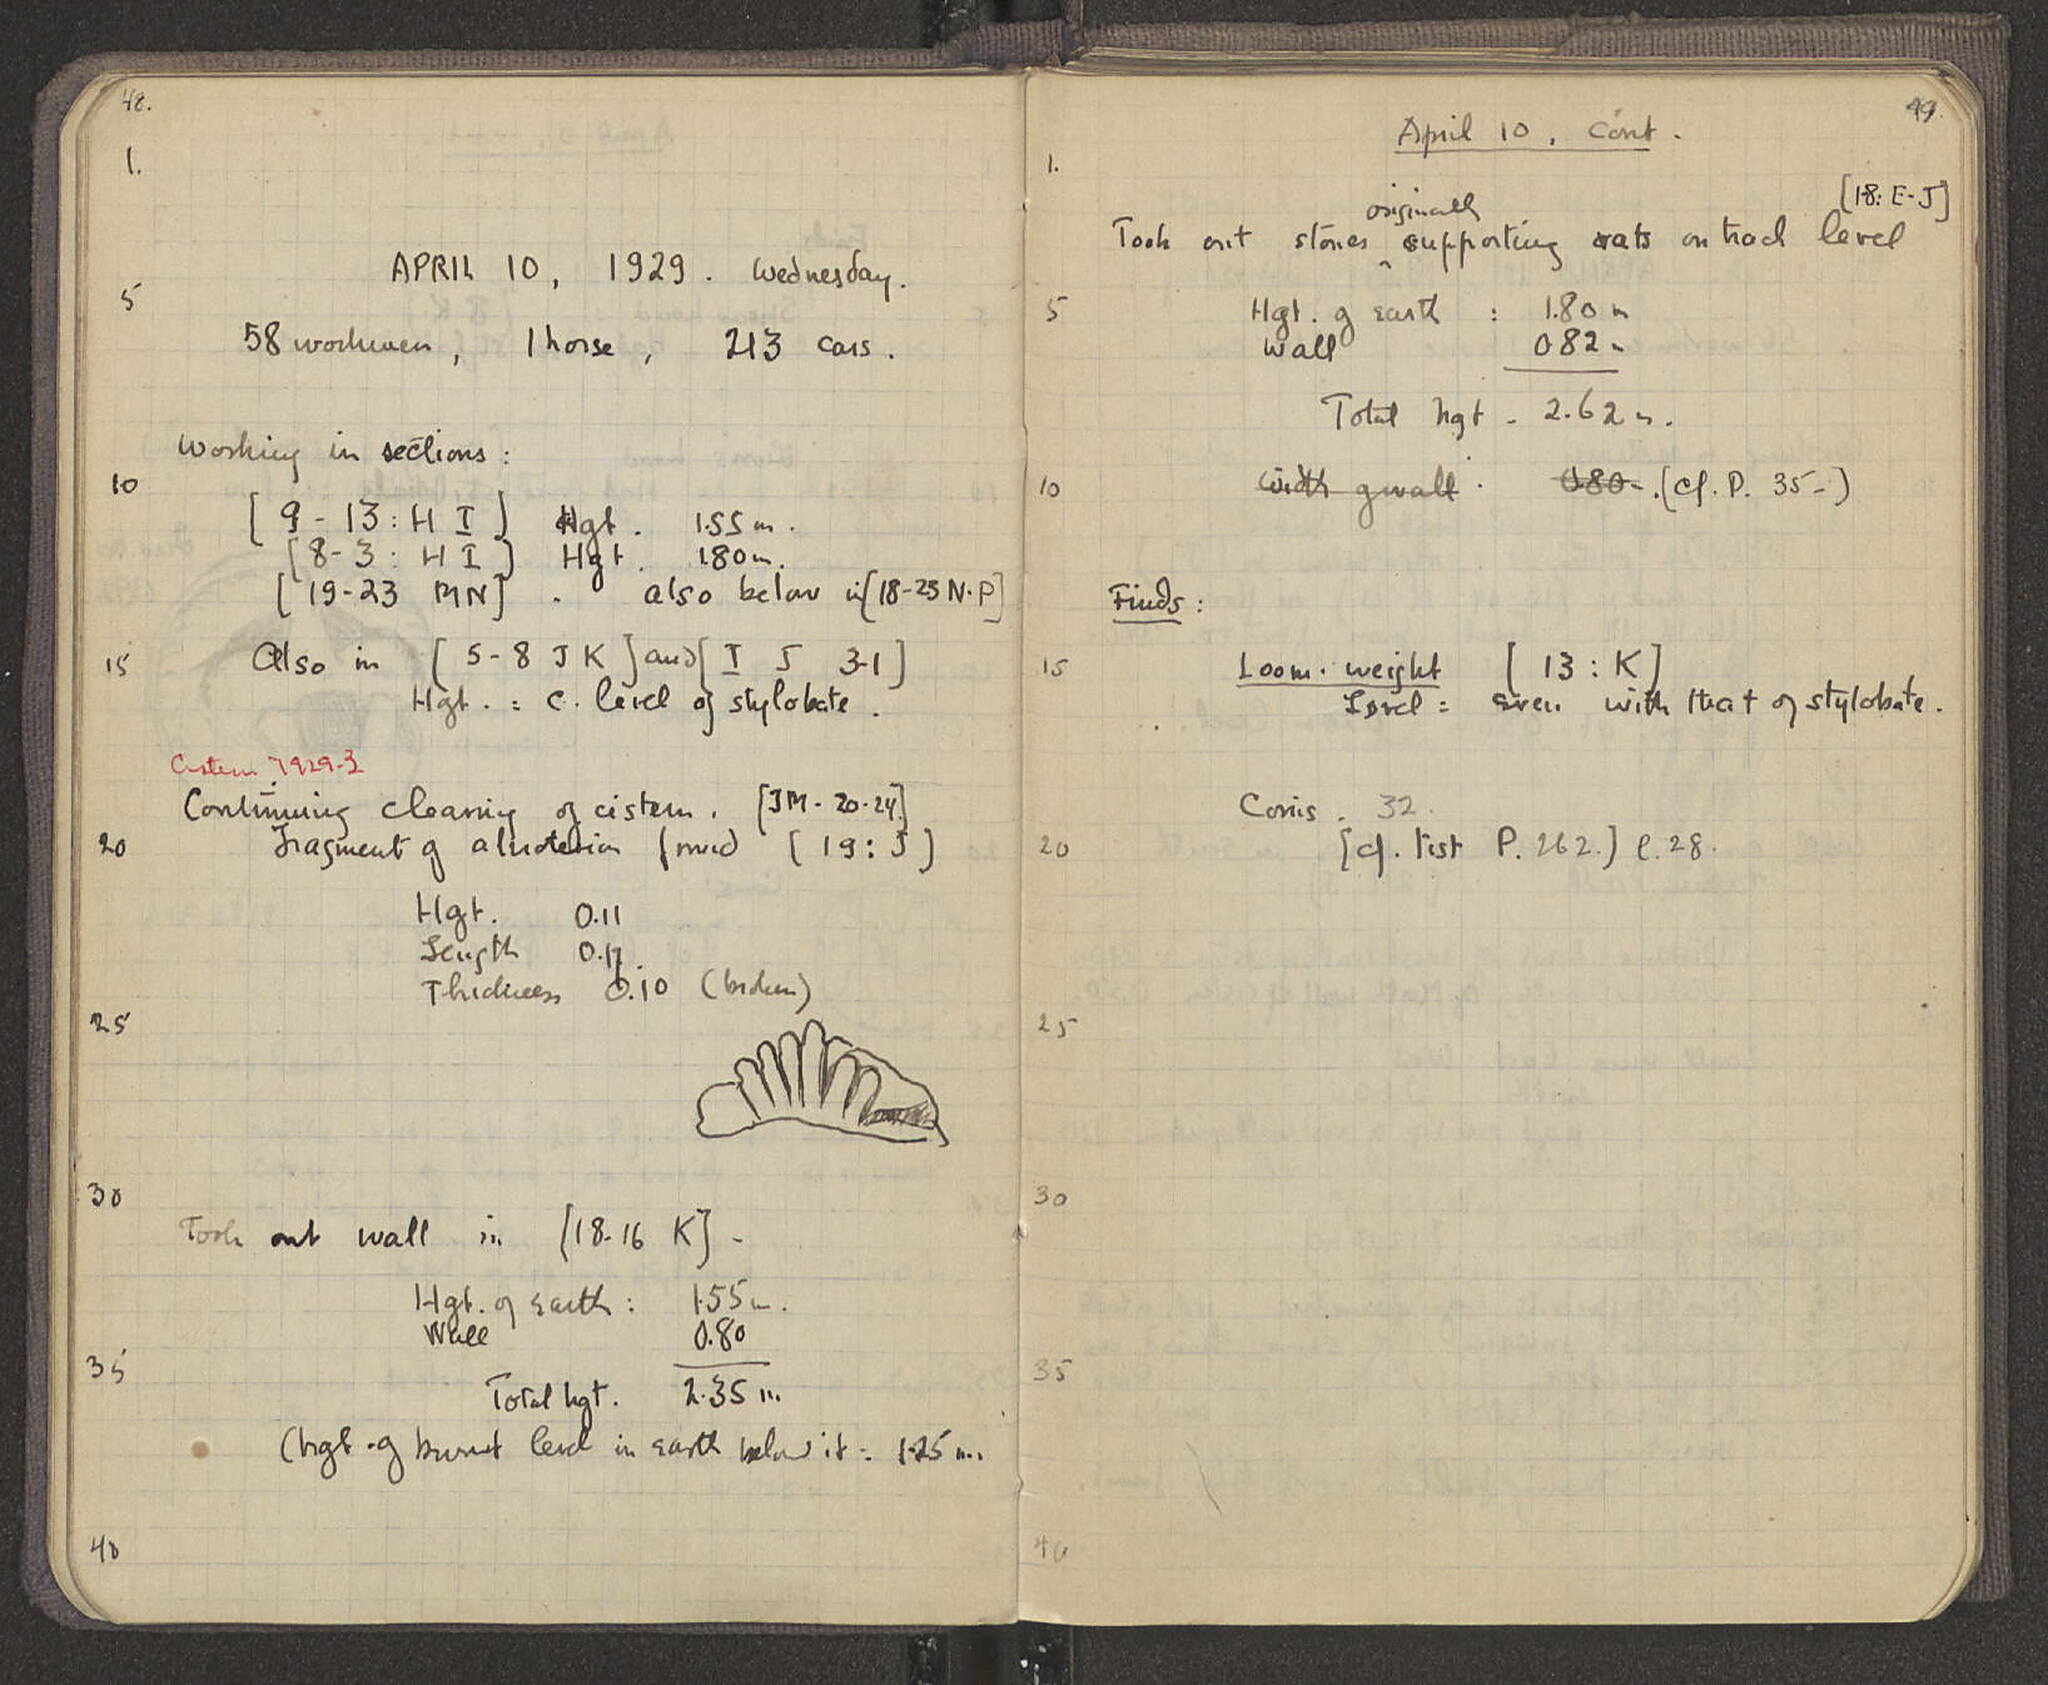 48.
1.
APRIL 10, 1929. Wednesday.
5
58 workmen, 1 horse, 213 cars.
Working in sections:
10
[9-13: H I] Hgt. 1.55 m.
[8-3: H I] Hgt. 1.80 m.
[19-23 MN]. also below in [18-23 N-P]
15
Also in [5-8 J K] and [I J 3-1]
Hgt. = c. level of stylobate.
Cistern 1929-3
Continuing clearing of cistern. [JM-20-24]
20
Fragment of [19: J]
Hgt. 0.11
Length 0.17.
Thickness 0.10 (broken)
25
30
Took out wall in [18-16 K] -
Hgt. of earth: 1.55 m.
Wall 0.80
35
Total hgt. 2.35 m.
(hgt. of burnt level in earth below it = 1.25 m.
40
49.
April 10, Cont.
1.
[18: E-J]
originally
Took out stones supporting on track level
5
Hgt. of earth : 1.80 m
Wall 0.82 m
Total hgt - 2.62 m.
10
Width of wall. 0.80-. (cf. P. 35-)
Finds:
15
Loom-weight [13: K]
Level = even with that of stylobate.
Coins. 32.
20
[cf. list P. 262.] l. 28.
25
30
35
40